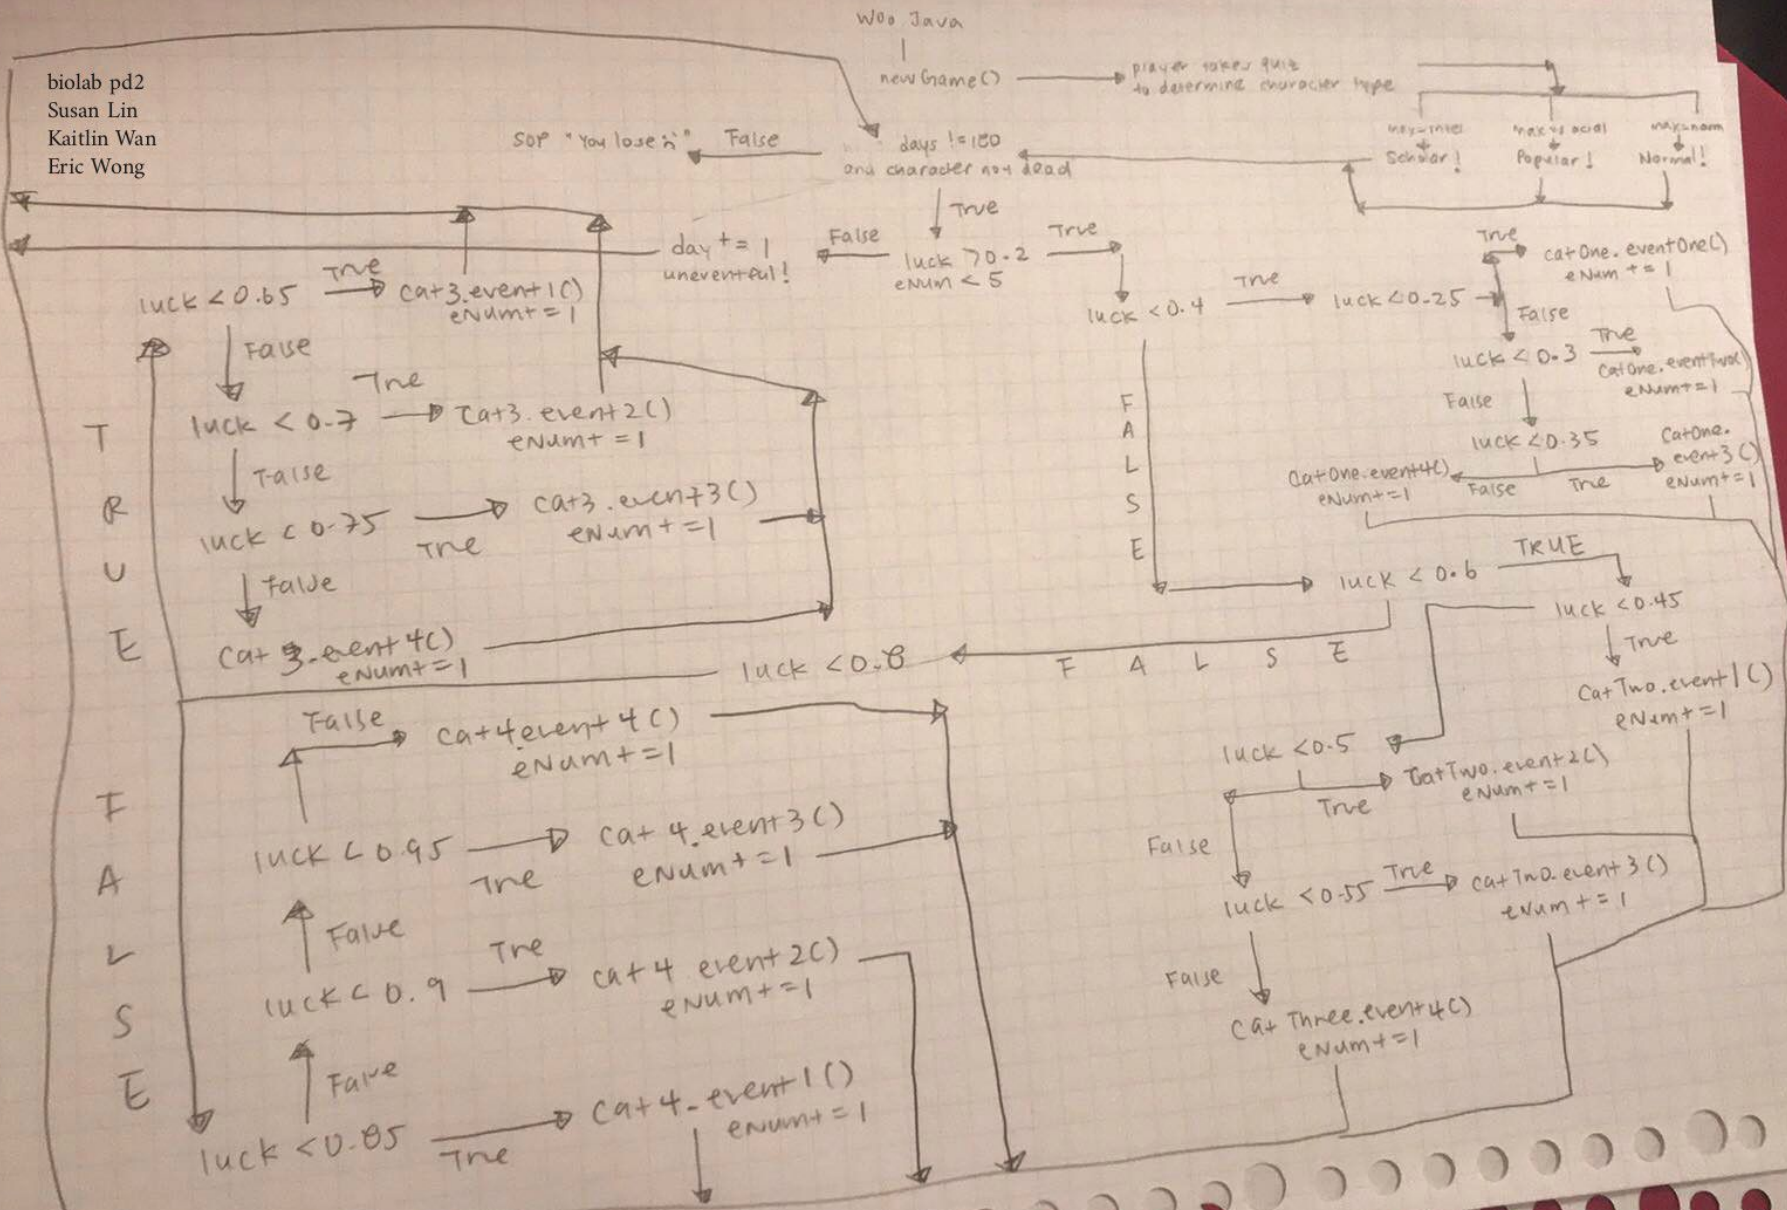 biolab pd2
Susan Lin
Kaitlin Wan
Eric Wong
Woo Java
newGame()
player takes quiz
to determine character type
max=inter
Scholar!
max=social
Popular!
max=norm
Normal!
days != 180
and character not dead
False
SOP "You lose
True
luck > 0.2
eNum < 5
False
day += 1
uneventful!
True
luck < 0.4
True
luck < 0.25
True
catOne.eventOne()
eNum += 1
False
luck < 0.3
True
CatOne.eventTwo()
eNum += 1
False
luck < 0.35
True
CatOne.
event3()
eNum += 1
False
CatOne.event4()
eNum += 1
FALSE
luck < 0.6
TRUE
luck < 0.45
True
CatTwo.event1()
eNum += 1
luck < 0.5
True
CatTwo.event2()
eNum += 1
False
luck < 0.55
True
CatTwo.event3()
eNum += 1
False
CatThree.event4()
eNum += 1
FALSE
luck < 0.8
TRUE
luck < 0.65
True
cat3.event1()
eNum += 1
False
luck < 0.7
True
cat3.event2()
eNum += 1
False
luck < 0.75
True
cat3.event3()
eNum += 1
False
cat3.event4()
eNum += 1
FALSE
False
cat4.event4()
eNum += 1
luck < 0.95
True
cat4.event3()
eNum += 1
False
luck < 0.9
True
cat4 event2()
eNum += 1
False
luck < 0.85
True
cat4.event1()
eNum += 1